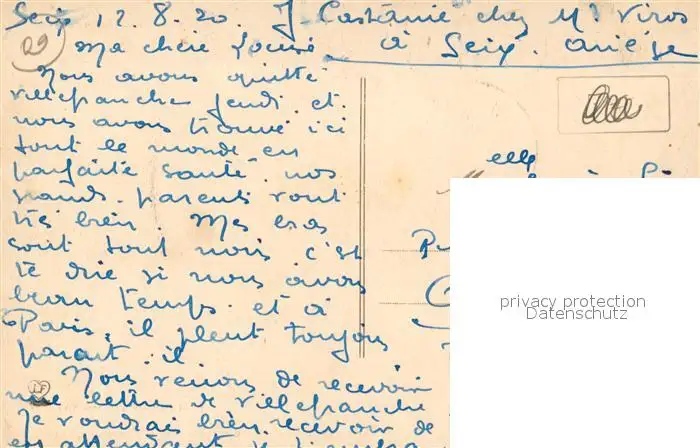 Seix 12.8.20. J. Castanié chez Mr Viros
à Seix. Ariège
29
Ma chère Louise
Nous avons quitté
Villefranche jeudi et
nous avons trouvé ici
tout le monde en
parfaite santé nos
grands-parents vont
très bien. Mes bras
sont tout noirs c'est
te dire si nous avons
beau temps et à
Paris, il pleut toujours
paraît-il
Nous venons de recevoir
une lettre de Villefranche
Je voudrais bien recevoir de
en attendant je
elle
privacy protection
Datenschutz